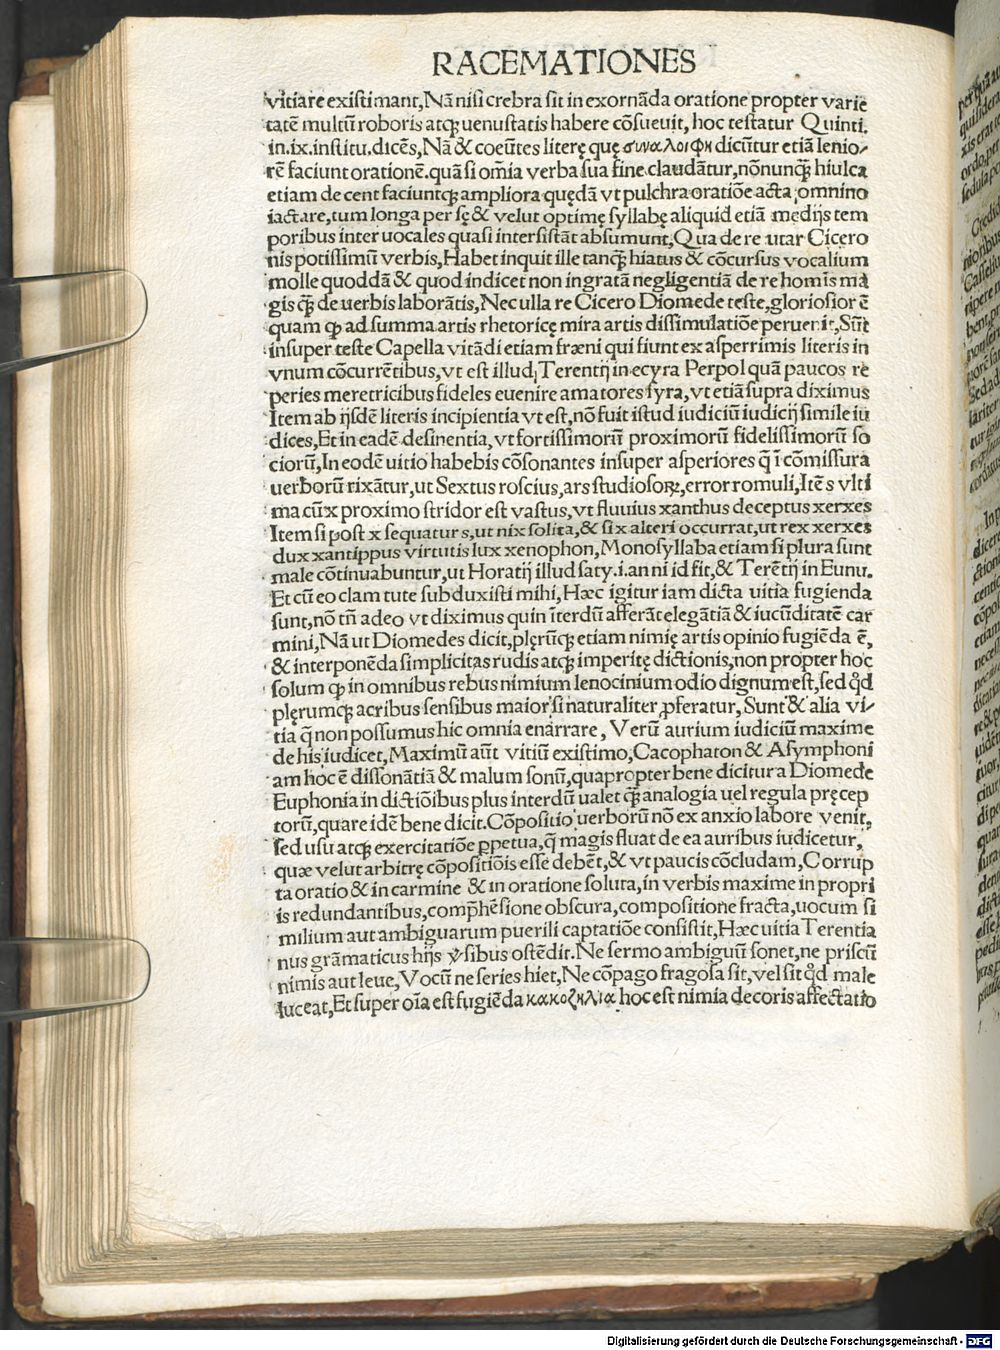 RACEMATIONES
vitiare existimant, Nā nisi crebra sit in exornāda oratione propter varie
tatē multū roboris atqꝫ uenustatis habere cōsueuit, hoc testatur Quinti.
in.ix.institu.dicēs, Nā & coeūtes literę quę συναλοιφη dicūtur etiā lenio/
rē faciunt orationē.quā si om̄ia verba sua fine claudātur, nōnunqꝫ hiulca
etiam decent faciuntqꝫ ampliora quędā vt pulchra oratiōe acta omnino
iactare, tum longa per sę & velut optimę syllabę aliquid etiā medijs tem
poribus inter uocales quasi intersistāt absumunt, Qua de re utar Cicero
nis potissimū verbis, Habet inquit ille tanqꝫ hiatus & cōcursus vocalium
molle quoddā & quod indicet non ingratā negligentiā de re homīs ma
gis qꝫ de uerbis laborātis, Nec ulla re Cicero Diomede teste, gloriosior ē
quam ꝙ ad summa artis rhetoricę mira artis dissimulatiōe peruerit, Sūt
insuper teste Capella vitādi etiam fræni qui fiunt ex asperrimis literis in
vnum cōcurrētibus, vt est illud, Terentij in ecyra Perpol quā paucos re
peries meretricibus fideles euenire amatores syra, vt etiā supra diximus
Item ab ijsdē literis incipientia vt est, nō fuit istud iudiciū iudicij simile iu
dices, Et in eadē desinentia, vt fortissimorū proximorū fidelissimorū so
ciorū, In eodē uitio habebis cōsonantes insuper asperiores q̄ ī cōmissura
uerborū rixātur, ut Sextus roscius, ars studiosoꝝ, error romuli, Itē s vlti
ma cū x proximo stridor est vastus, vt fluuius xanthus deceptus xerxes
Item si post x sequatur s, ut nix solita, & si x alteri occurrat, ut rex xerxes
dux xantippus virtutis lux xenophon, Monosyllaba etiam si plura sunt
male cōtinuabuntur, ut Horatij illud saty.i.an ni id fit, & Terētij in Eunu.
Et cū eo clam tute subduxisti mihi, Hæc igitur iam dicta vitia fugienda
sunt, nō tn̄ adeo vt diximus quin īterdū afferāt elegātiā & iucūditatē car
mini, Nā ut Diomedes dicit, plęrūqꝫ etiam nimię artis opinio fugiēda ē,
& interponēda simplicitas rudis atqꝫ imperitę dictionis, non propter hoc
solum ꝙ in omnibus rebus nimium lenocinium odio dignum est, sed qd̄
plęrumqꝫ acribus sensibus maior si naturaliter ꝓferatur, Sunt & alia vi/
tia q̄ non possumus hic omnia enarrare, Verū aurium iudiciū maxime
de his iudicet, Maximū aūt vitiū existimo, Cacophaton & Asymphoni
am hoc ē dissonātiā & malum sonū, quapropter bene dicitur a Diomede
Euphonia in dictiōibus plus interdū ualet qꝫ analogia uel regula pręcep
torū, quare idē bene dicit. Cōpositio uerborū nō ex anxio labore venit,
sed usu atqꝫ exercitatiōe ꝑpetua, q̄ magis fluat de ea auribus iudicetur,
quæ velut arbitrę cōpositiōis esse debēt, & vt paucis cōcludam, Corrup
ta oratio & in carmine & in oratione soluta, in verbis maxime in propri
is redundantibus, comp̄hēsione obscura, compositione fracta, uocum si
milium aut ambiguarum puerili captatiōe consistit, Hæc uitia Terentia
nus grāmaticus hijs ꝟsibus ostēdit. Ne sermo ambiguū sonet, ne priscū
nimis aut leue, Vocū ne series hiet, Ne cōpago fragosa sit, vel sit qd̄ male
luceat, Et super oīa est fugiēda κακοζηλια hoc est nimia decoris affectatio
Digitalisierung gefördert durch die Deutsche Forschungsgemeinschaft - DFG